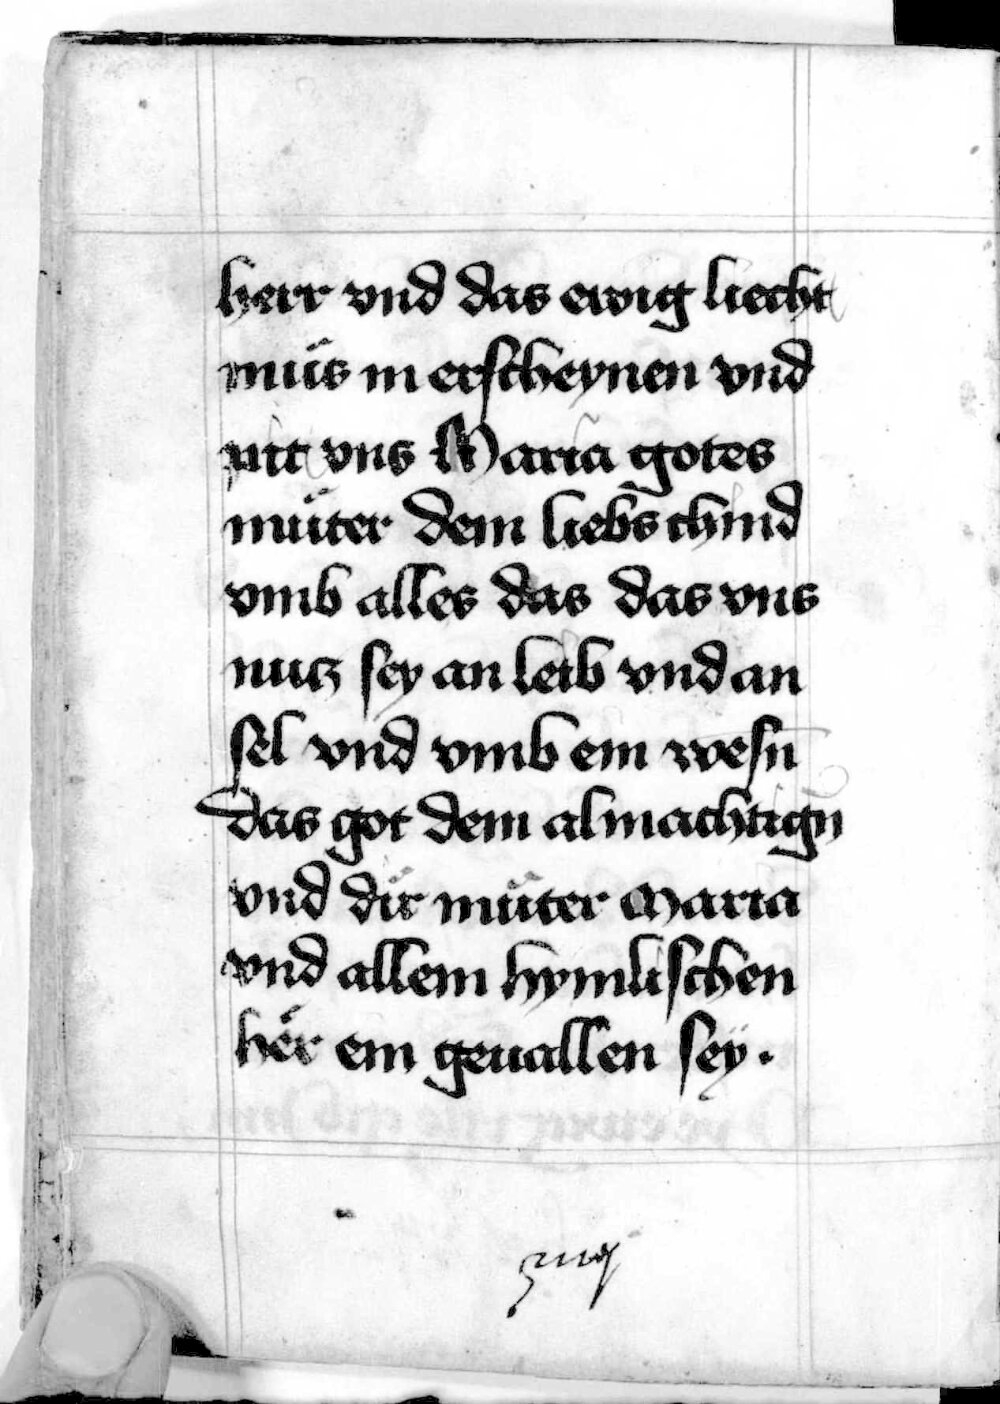 herr vnd das ewig liecht
muͤs in erscheynen vnd
pit vns Maria gotes
muͤter dem liebs chind
vmb alles das das vns
nutz sey an leib vnd an
sel vnd vmb ein wesn̄
das got dem almachtign
vnd dir muͤter Maria
vnd allem hymlischen
her ein geuallen sey.